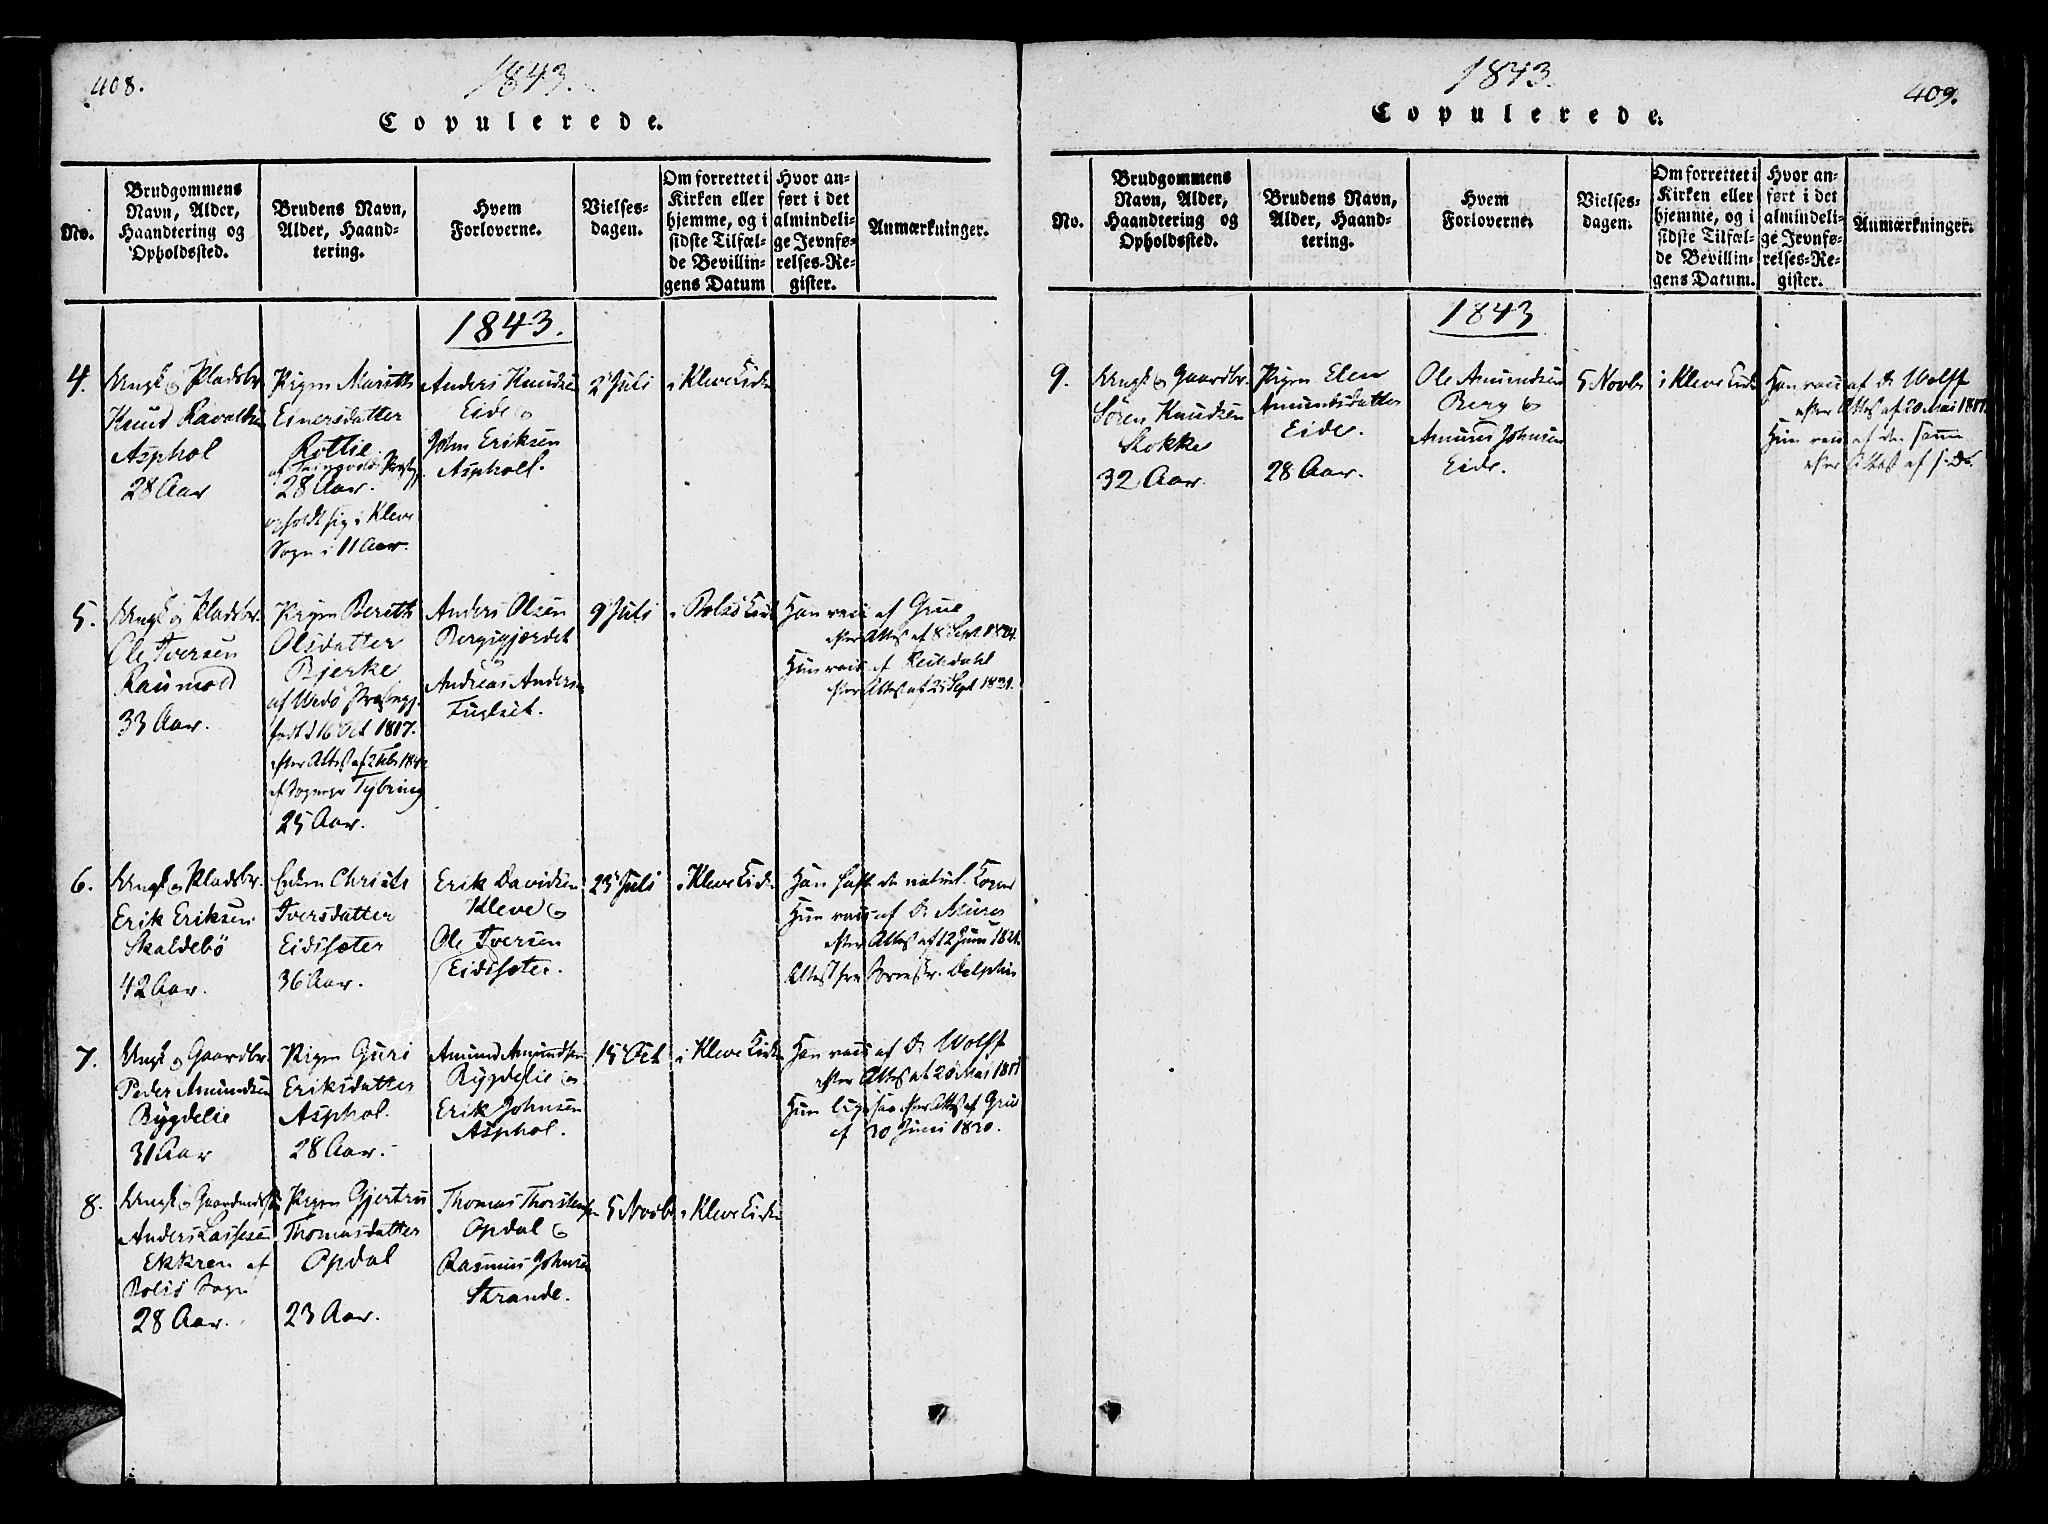 408.
1843.
Copulerede.
No.
Brudgommens Navn, Alder, Haandtering og Opholdssted.
Brudens Navn, Alder, Haandtering.
Hvem Forloverne.
Vielsesdagen.
Om forrettet i Kirken eller hjemme, og i sidste Tilfælde Bevillingens Datum
Hvor anført i det almindelige Jevnførelses-Register.
Anmærkninger.
1843.
4.
Ungk og Pladsbr.
Knud
Asphol
28 Aar
Pigen Marith
Einersdatter
Rottie
28 Aar.
opholdt sig i Kleve
Sogn i 11 Aar.
Anders Knudsen
Eide og
John Eriksen
Asphol.
2 Juli
i Kleve Kirke
5.
Ungk og Pladsbr.
Ole Iversen
33 Aar.
Pigen Berith
Olsdatter
Bjerke
af Wedø Præstegj.
født d 16 Oct 1817.
efter Attest af
Tybring
25 Aar.
Anders Olsen
Bergsgjerdet
Andreas Anders
Fuglset.
9 Juli
i Bolsø Kirk
Han vacc af Grue
efter Attest af 8 Sept
Hun vacc af
efter Attest af
6.
Ungk og Pladsbr.
Erik Eriksen
Skaldebø
42 Aar.
Enken
Iversdatter
Eidssæter
36 Aar.
Erik Davidsen
Kleve og
Ole Iversen
Eidssæter.
23 Juli
i Kleve Kirke
Han haft de naturl. Kopper
Hun vacc af
efter Attest af 12 Juni
Attest fra
7.
Ungk og Gaardbr.
Peder Amundsen
Bygdelie
31 Aar
Pigen Guri
Eriksdatter
Asphol.
28 Aar.
Amund Amundsen
Bygdelie og
Erik Johnsen
Asphol.
15 Oct
i Kleve Kirke
Han vacc af Dr Wolff
efter Attest af 20 Mai
Hun ligesaa efter Attest af Grue
af 20 Juni 1820.
8.
Ungk og
Anders Lassesen
Ekkren af
Bolsø Sogn
28 Aar.
Pigen Gjertru
Thomasdatter
Opdal
23 Aar.
Thomas Thorstensen
Opdal og
Rasmus Johnsen
Strande.
5 Novb
i Kleve Kirke
1843.
409.
Copulerede.
No.
Brudgommens Navn, Alder, Haandtering og Opholdssted.
Brudens Navn, Alder, Haandtering.
Hvem Forloverne.
Vielsesdagen.
Om forrettet i Kirken eller hjemme, og i sidste Tilfælde Bevillingens Datum.
Hvor anført i det almindelige Jevnførelses-Register.
Anmærkninger.
1843
9.
Ungk og Gaardbr.
Søren Knudsen
Stokke
32 Aar.
Pigen Elen
Amundsdatter
Eide.
28 Aar.
Ole Amundsen
Berg og
Amund Johnsen
Eide.
5 Novb
i Kleve Kirke
Han vacc af Dr Wolff
efter Attest af 20 Mai
Hun vacc af den samme
efter Attest af s. D.